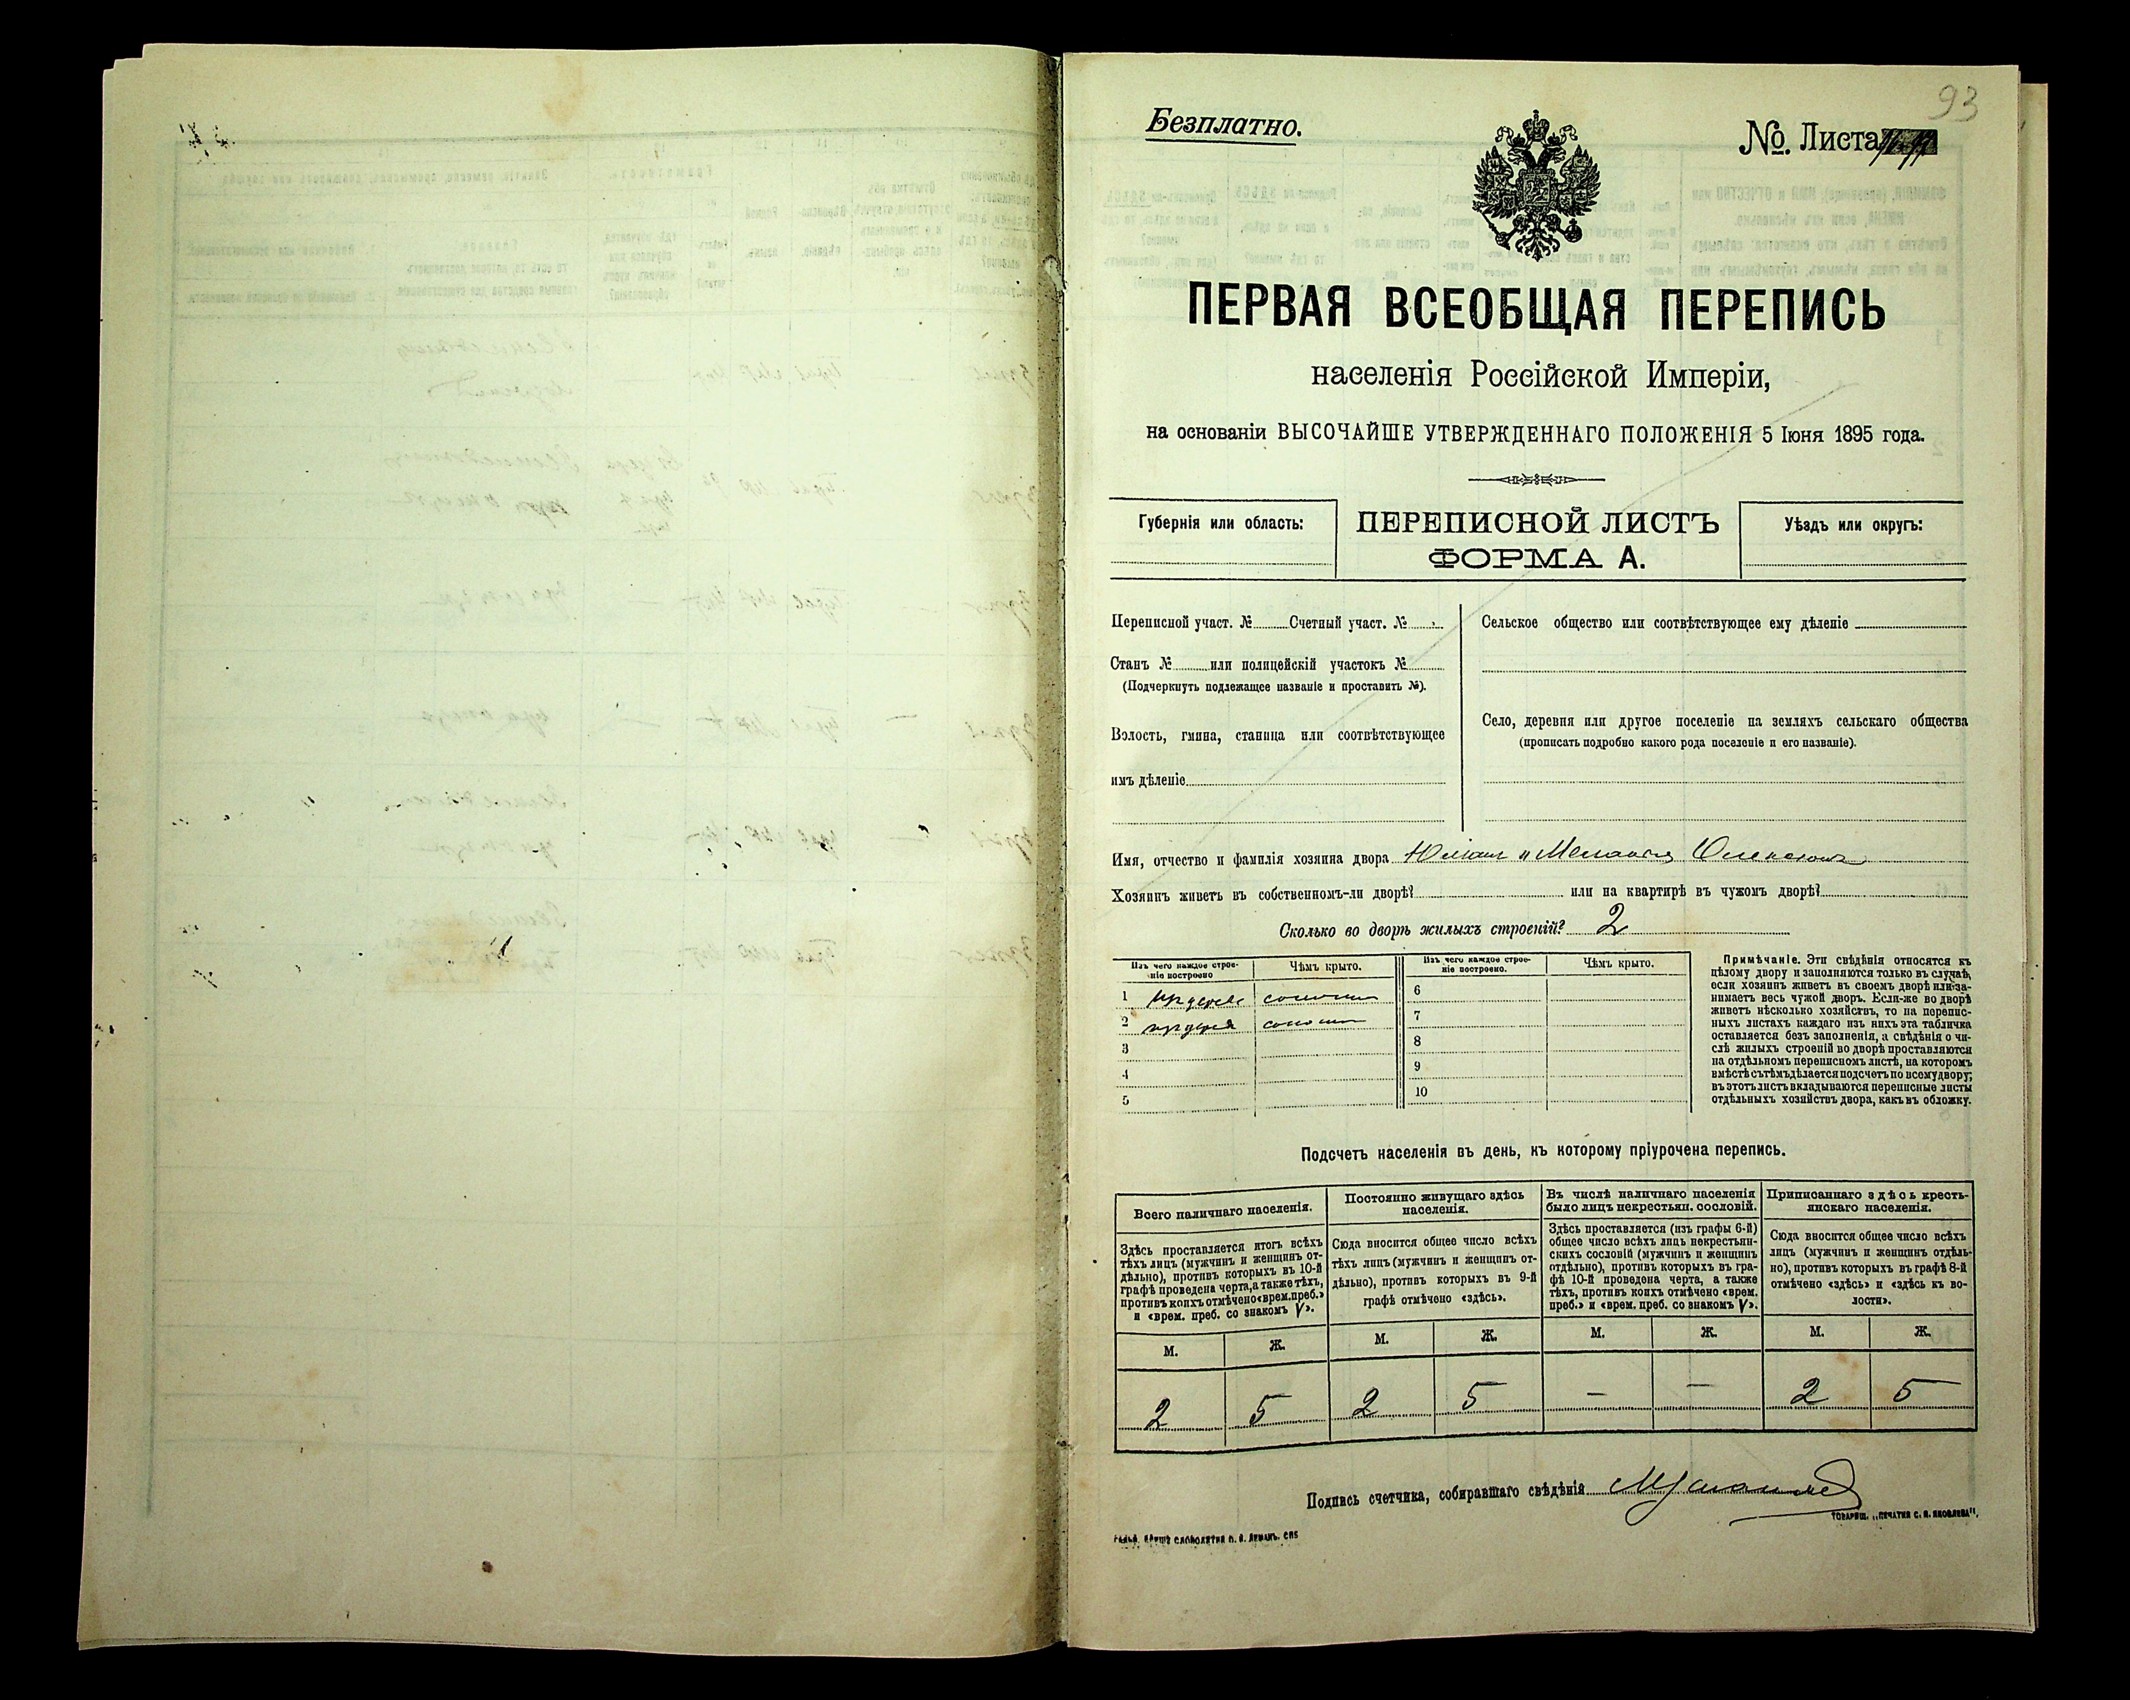 93
Безплатно.
№. Листа
ПЕРВАЯ ВСЕОБЩАЯ ПЕРЕПИСЬ
населенія Россійской Имперіи,
на основаніи ВЫСОЧАЙШЕ УТВЕРЖДЕННАГО ПОЛОЖЕНІЯ 5 Іюня 1895 года.
Губернія или область:
ПЕРЕПИСНОЙ ЛИСТЪ
ФОРМА А.
Уѣздъ или округъ:
Переписной участ. № Счетный участ. №
Станъ № или полицейскій участокъ №
(Подчеркнуть подлежащее названіе и проставить №).
Волость, гмина, станица или соотвѣтствующее
имъ дѣленіе
Сельское общество или соотвѣтствующее ему дѣленіе
Село, деревня или другое поселеніе на земляхъ сельскаго общества
(прописать подробно какого рода поселеніе и его названіе).
Имя, отчество и фамилія хозяина двора
Хозяинъ живетъ въ собственномъ-ли дворѣ? или на квартирѣ въ чужомъ дворѣ?
Сколько во дворѣ жилыхъ строеній? 2
Изъ чего каждое строе-
ніе построено
Чѣмъ крыто.
1
2
3
4
5
Изъ чего каждое строе-
ніе построено.
Чѣмъ крыто.
6
7
8
9
10
Примѣчаніе. Эти свѣдѣнія относятся къ
цѣлому двору и заполняются только въ случаѣ,
если хозяинъ живетъ въ своемъ дворѣ или за-
нимаетъ весь чужой дворъ. Если-же во дворѣ
живетъ нѣсколько хозяйствъ, то на перепис-
ныхъ листахъ каждаго изъ нихъ эта табличка
оставляется безъ заполненія, а свѣдѣнія о чи-
слѣ жилыхъ строеній во дворѣ проставляются
на отдѣльномъ переписномъ листѣ, на которомъ
вмѣстѣ съ тѣмъ дѣлается подсчетъ по всему двору;
въ этотъ листъ вкладываются переписные листы
отдѣльныхъ хозяйствъ двора, какъ въ обложку.
Подсчетъ населенія въ день, къ которому пріурочена перепись.
Всего наличнаго населенія.
Здѣсь проставляется итогъ всѣхъ
тѣхъ лицъ (мужчинъ и женщинъ от-
дѣльно), противъ которыхъ въ 10-й
графѣ проведена черта, а также тѣхъ,
противъ коихъ отмѣчено «врем. преб.»
и «врем. преб. со знакомъ V».
М. Ж.
2 5
Постоянно живущаго здѣсь
населенія.
Сюда вносится общее число всѣхъ
тѣхъ лицъ (мужчинъ и женщинъ от-
дѣльно), противъ которыхъ въ 9-й
графѣ отмѣчено «здѣсь».
М. Ж.
2 5
Въ числѣ наличнаго населенія
было лицъ некрестьян. сословій.
Здѣсь проставляется (изъ графы 6-й)
общее число всѣхъ лицъ некрестьян-
скихъ сословій (мужчинъ и женщинъ
отдѣльно), противъ которыхъ въ гра-
фѣ 10-й проведена черта, а также
тѣхъ, противъ коихъ отмѣчено «врем.
преб.» и «врем. преб. со знакомъ V».
М. Ж.
— —
Приписаннаго здѣсь кресть-
янскаго населенія.
Сюда вносится общее число всѣхъ
лицъ (мужчинъ и женщинъ отдѣль-
но), противъ которыхъ въ графѣ 8-й
отмѣчено «здѣсь» и «здѣсь къ во-
лости».
М. Ж.
2 5
Подпись счетчика, собиравшаго свѣдѣнія
ТОВАРИЩ. „ПЕЧАТНЯ С. П. ЯКОВЛЕВА".
СЛОВОЛИТНЯ О. И. ЛЕМАНЪ. СПБ